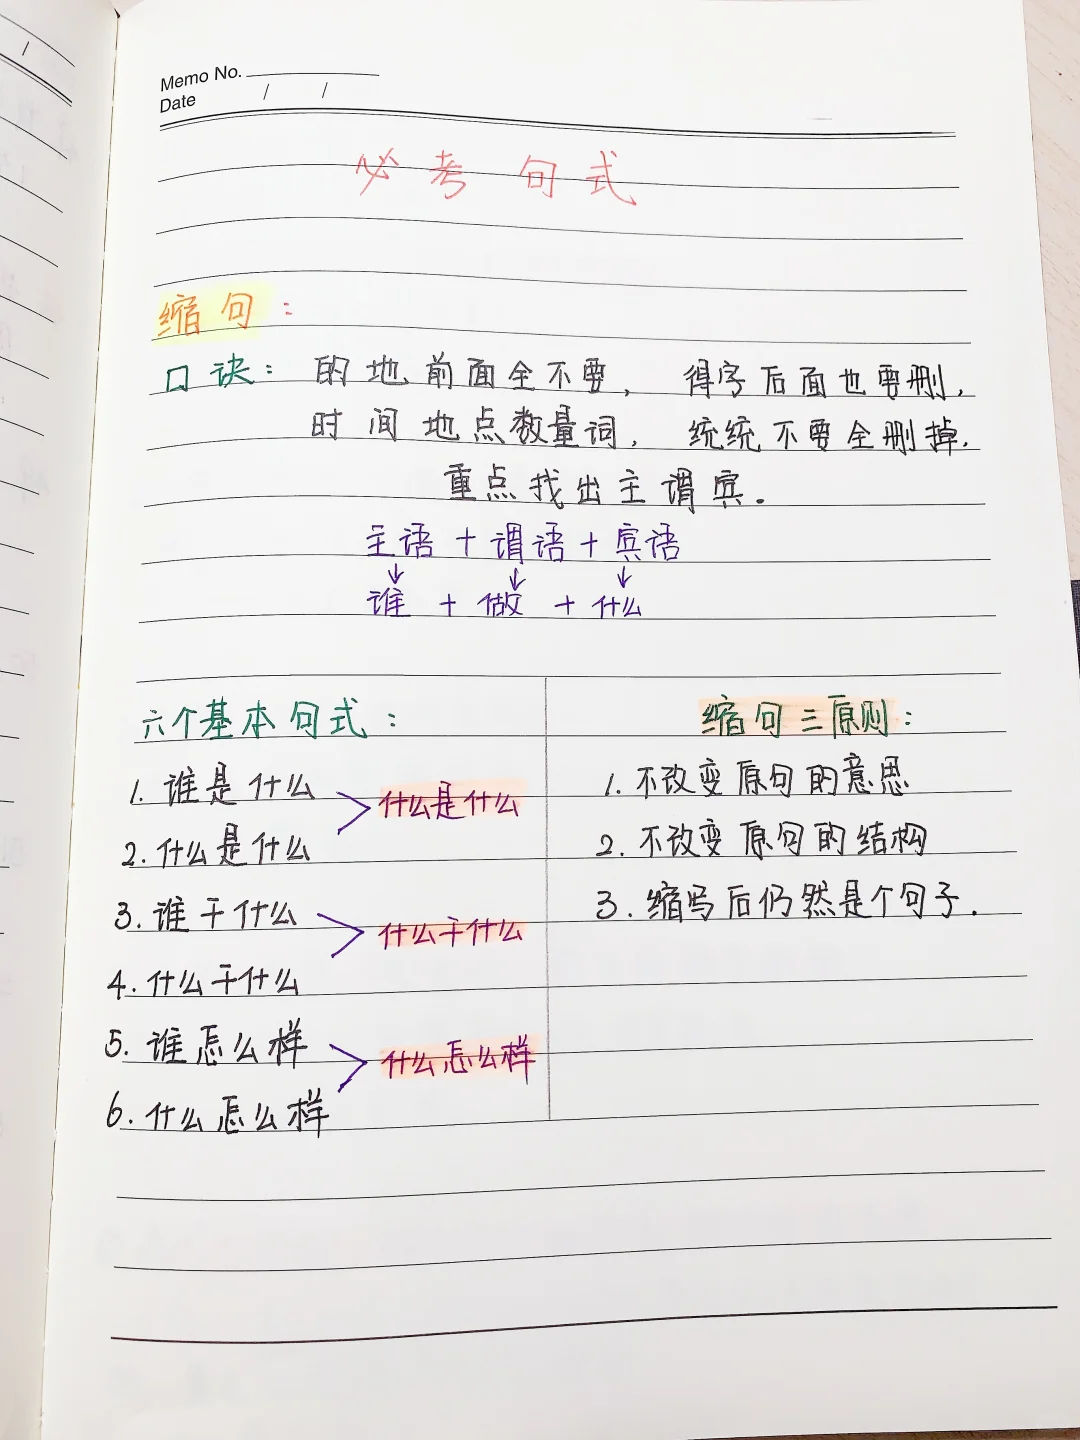 Memo No.
Date / /
必考句式
缩句：
口诀：的地前面全不要，得字后面也要删，
时间地点数量词，统统不要全删掉，
重点找出主谓宾．
主语＋谓语＋宾语
↓ ↓ ↓
谁＋做＋什么
六个基本句式：
1. 谁是什么
2. 什么是什么
什么是什么
3. 谁干什么
4. 什么干什么
什么干什么
5. 谁怎么样
6. 什么怎么样
什么怎么样
缩句三原则：
1. 不改变原句的意思
2. 不改变原句的结构
3. 缩写后仍然是个句子．